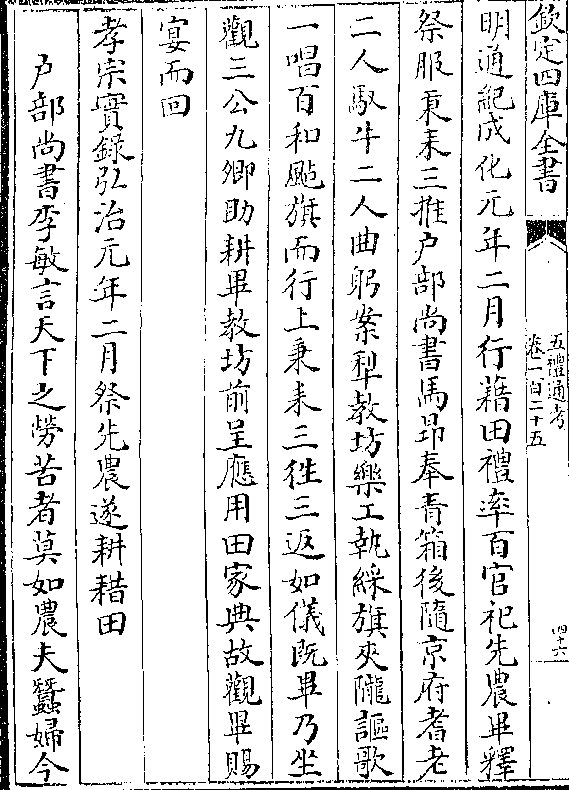 欽定四庫全書
五禮通考
卷一百二十五
四十六
明通紀成化元年二月行藉田禮率百官祀先農畢釋
祭服秉耒三推户部尚書馬昻奉青箱後隨京府耆老
二人馭牛二人曲躬案犁教坊樂工執綵旗夾隴謳歌
一唱百和颭旗而行上秉耒三徃三返如儀既畢乃坐
觀三公九卿助耕畢教坊前呈應用田家典故觀畢賜
宴而回
孝宗實錄弘治元年二月祭先農遂耕耤田
户部尚書李敏言天下之勞苦者莫如農夫蠶婦今